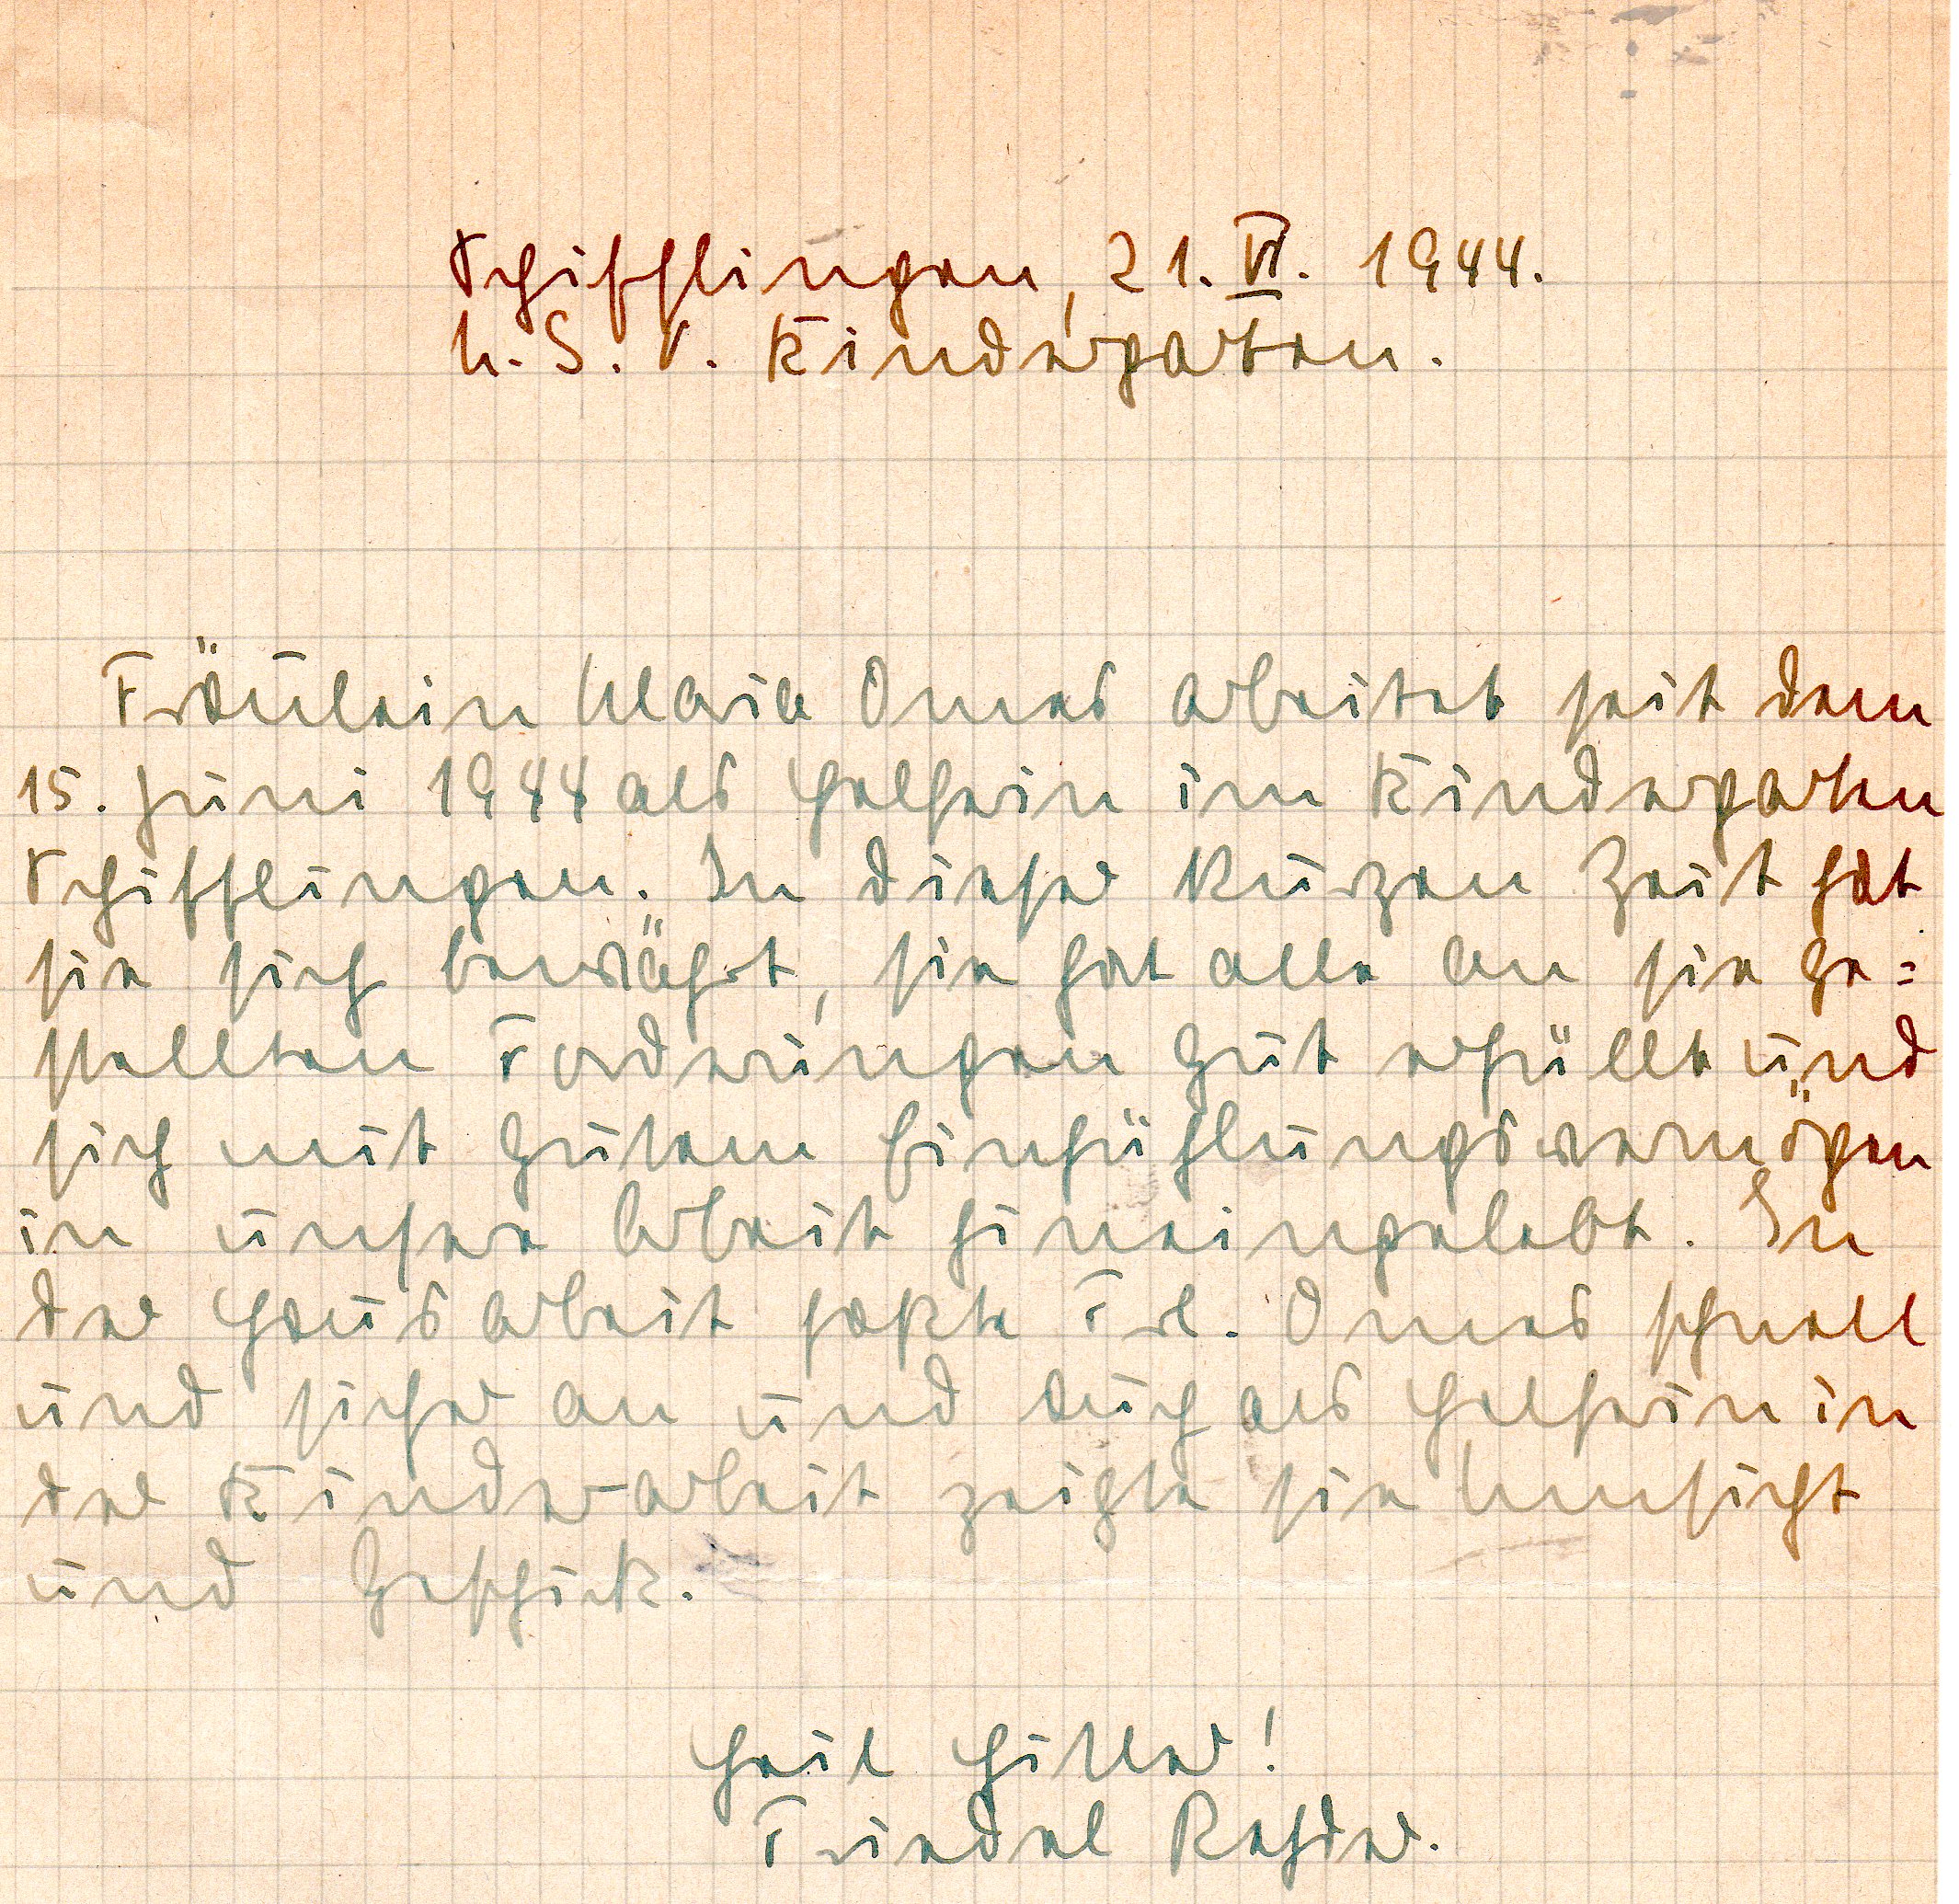 Schifflingen, 21. VI. 1944.
N. S. V. Kindergarten.
Fräulein Maria Omes arbeitet seit dem
15. Juni 1944 als Helferin im Kindergarten
Schifflingen. In dieser kurzen Zeit hat
sie sich bewährt, sie hat alle an sie ge=
stellten Forderungen gut erfüllt und
sich mit gutem Einfühlungsvermögen
in unsere Arbeit hineingelebt. In
der Hausarbeit faßte Frl. Omes schnell
und sicher an und auch als Helferin in
der Kinderarbeit zeigte sie Umsicht
und Geschick.
Heil Hitler!
Friedel